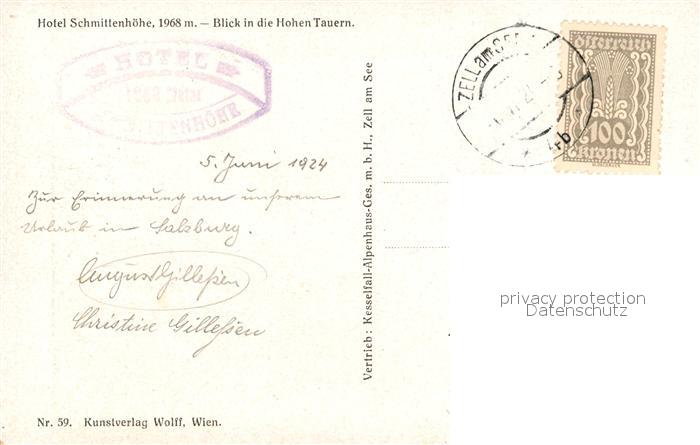 Hotel Schmittenhöhe, 1968 m. — Blick in die Hohen Tauern.
HOTEL
1968 Meter
SCHMITTENHÖHE
ZELL am SEE
4b
Österreich
100
Kronen
5. Juni 1924
Zur Erinnerung an unseren
Urlaub in Salzburg.
August Gilleßen
Christine Gilleßen
Vertrieb: Kesselfall-Alpenhaus-Ges. m. b. H., Zell am See
privacy protection
Datenschutz
Nr. 59. Kunstverlag Wolff, Wien.